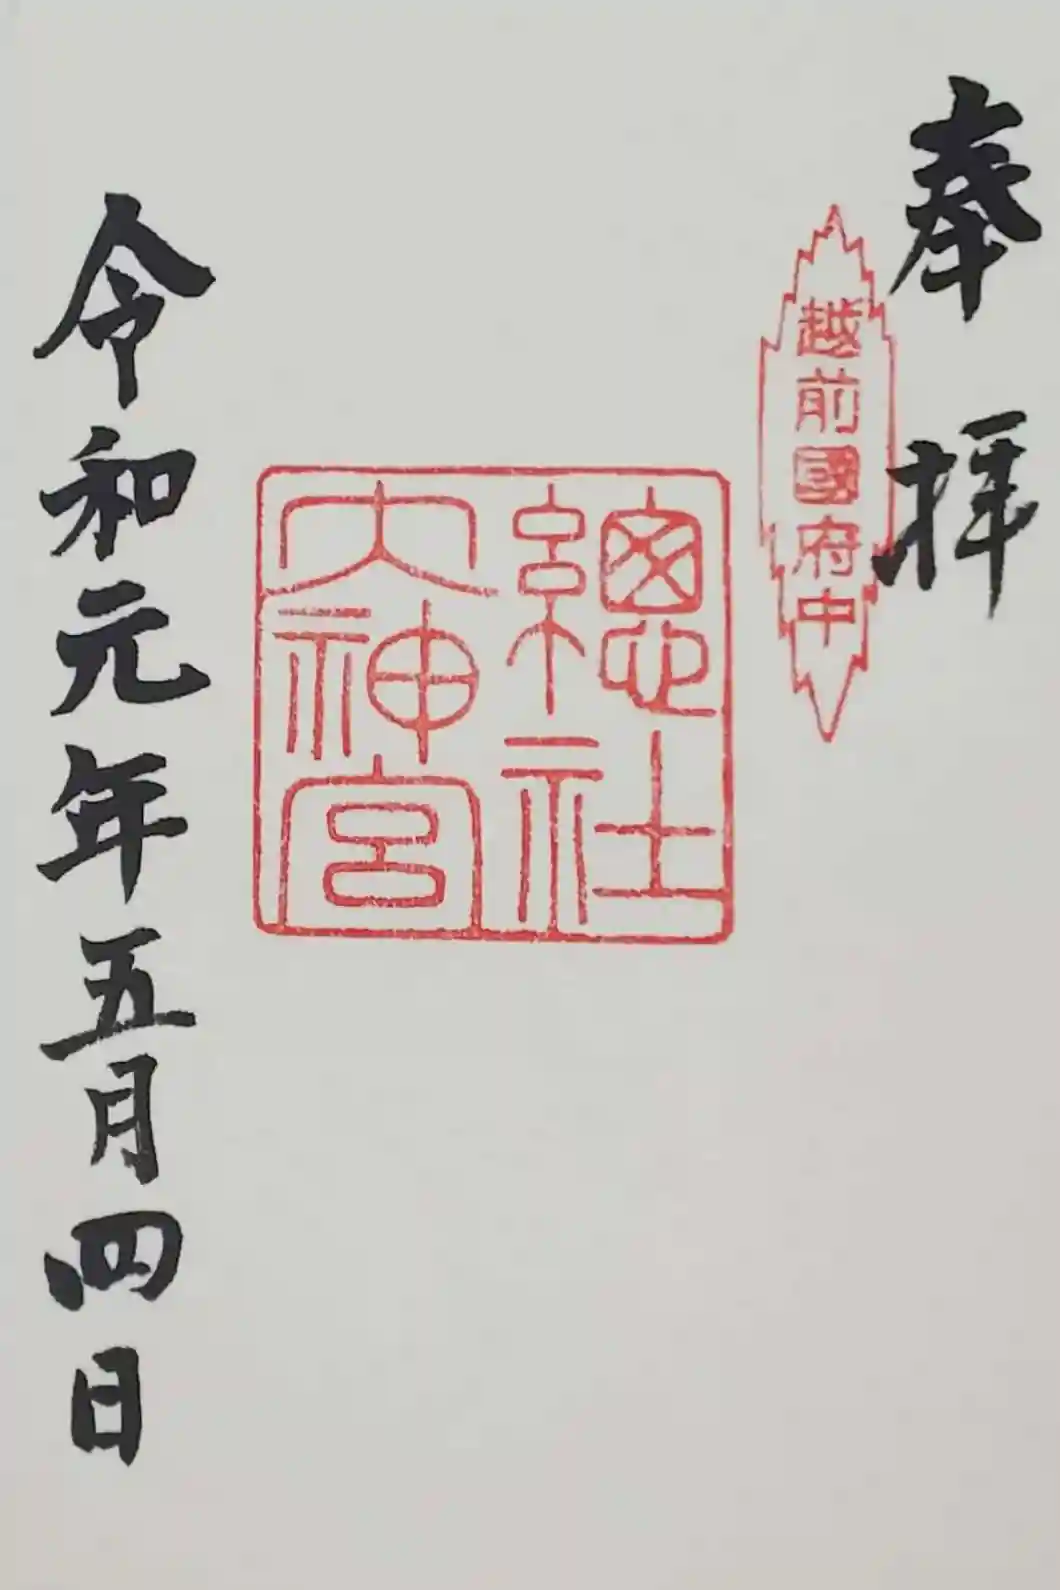 奉拝
越前國府中
總社
大神宮
令和元年五月四日